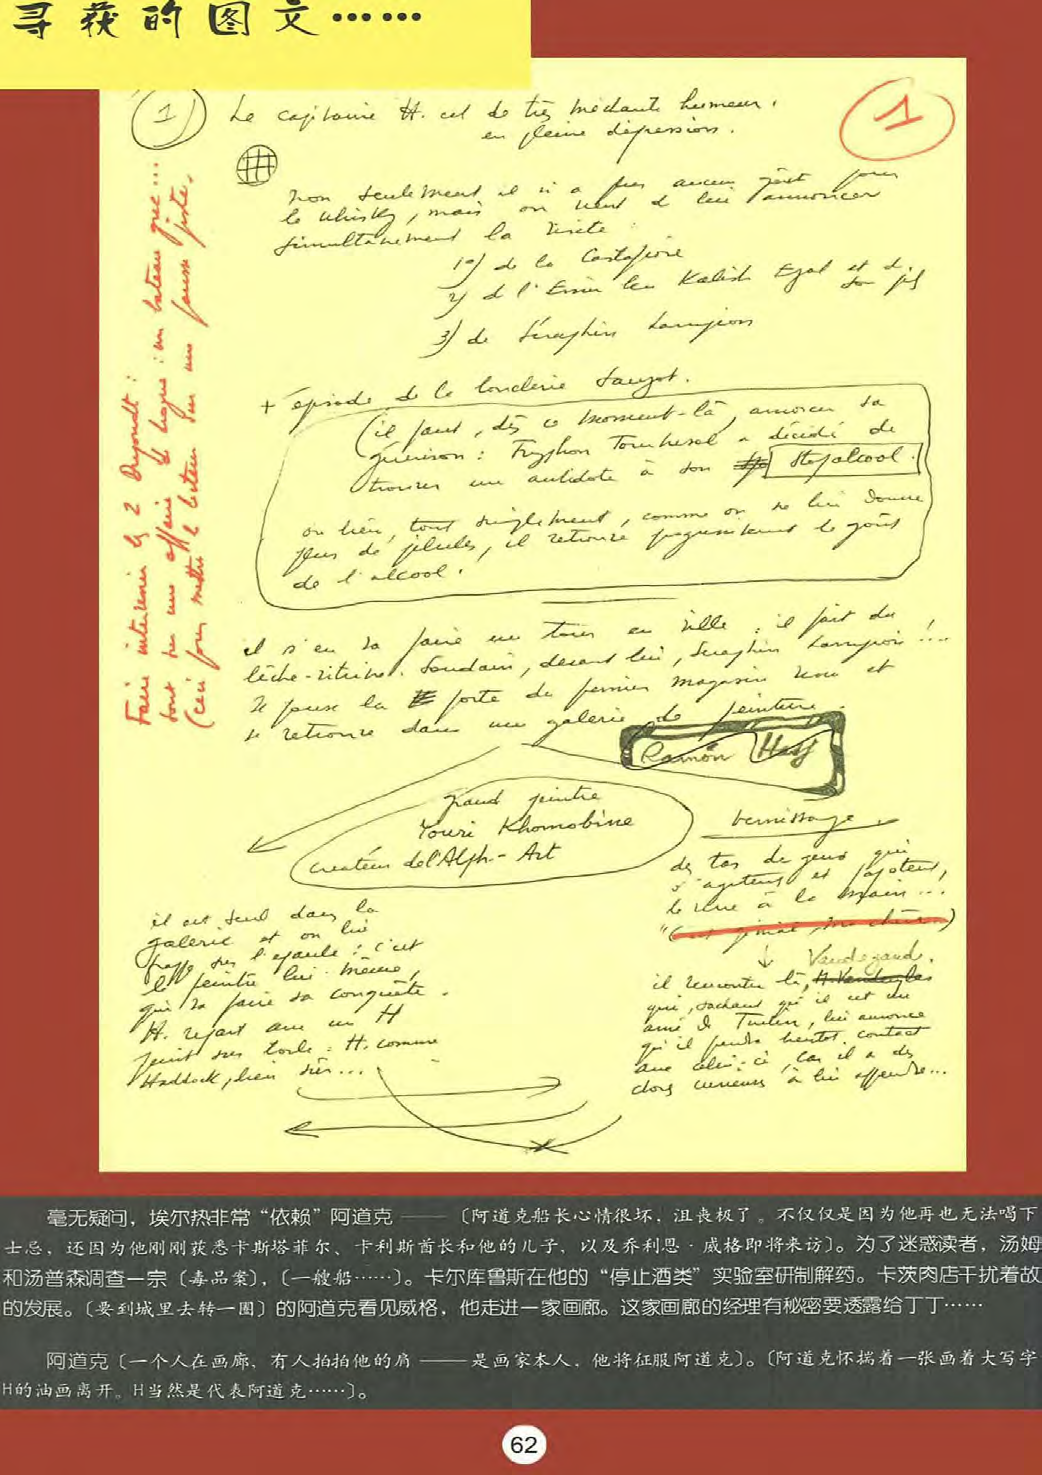 寻获的图文……
1
Le capitaine H. est de très méchante humeur,
en pleine dépression.
1
Non seulement il n'a plus aucun goût pour
le whisky, mais on vient de lui annoncer
simultanément la visite :
1°) de la Castafiore
2) de l'Emir Ben Kalish Ezab et de son fils
3) de Séraphin Lampion
+ épisode de la boucherie Sanzot.
(il faut, dès ce moment-là, amorcer sa
guérison : Tryphon Tournesol a décidé de
trouver un antidote à son Stopalcool.
ou bien, tout simplement, comme on ne lui donne
plus de pilules, il retrouve progressivement le goût
de l'alcool.
il s'en va faire un tour en ville : il fait du
lèche-vitrine. Soudain, devant lui, Séraphin Lampion !...
Il pousse la porte du premier magasin venu et
se retrouve dans une galerie de peinture.
Ramón Hasj
grand peintre
Youri Khomobine
créateur de l'Alph-Art
vernissage
des tas de gens qui
s'agitent et papotent,
le verre à la main...
Vandegaud.
il rencontre là,
qui, sachant qu'il est un
ami de Tintin, lui annonce
qu'il prendra bientôt contact
avec celui-ci, car il a des
choses curieuses à lui apprendre...
il est seul dans la
galerie et on lui
frappe sur l'épaule : c'est
le peintre lui-même,
qui va faire sa conquête.
H. repart avec un H
peint sur toile : H. comme
Haddock, bien sûr...
Faire intervenir les 2 Dupondt :
sont sur une affaire de drogue : un bateau grec...
(ceci pour mettre le lecteur sur une fausse piste.
毫无疑问，埃尔热非常“依赖”阿道克 —— 〔阿道克船长心情很坏，沮丧极了。不仅仅是因为他再也无法喝下
士忌，还因为他刚刚获悉卡斯塔菲尔、卡利斯酋长和他的儿子、以及乔利恩·威格即将来访〕。为了迷惑读者，汤姆
和汤普森调查一宗〔毒品案〕，〔一艘船……〕。卡尔库鲁斯在他的“停止酒类”实验室研制解药。卡茨肉店干扰着故
的发展。〔要到城里去转一圈〕的阿道克看见威格，他走进一家画廊。这家画廊的经理有秘密要透露给丁丁……
阿道克〔一个人在画廊，有人拍拍他的肩 —— 是画家本人，他将征服阿道克〕。〔阿道克怀揣着一张画着大写字
H的油画离开。H当然是代表阿道克……〕。
62